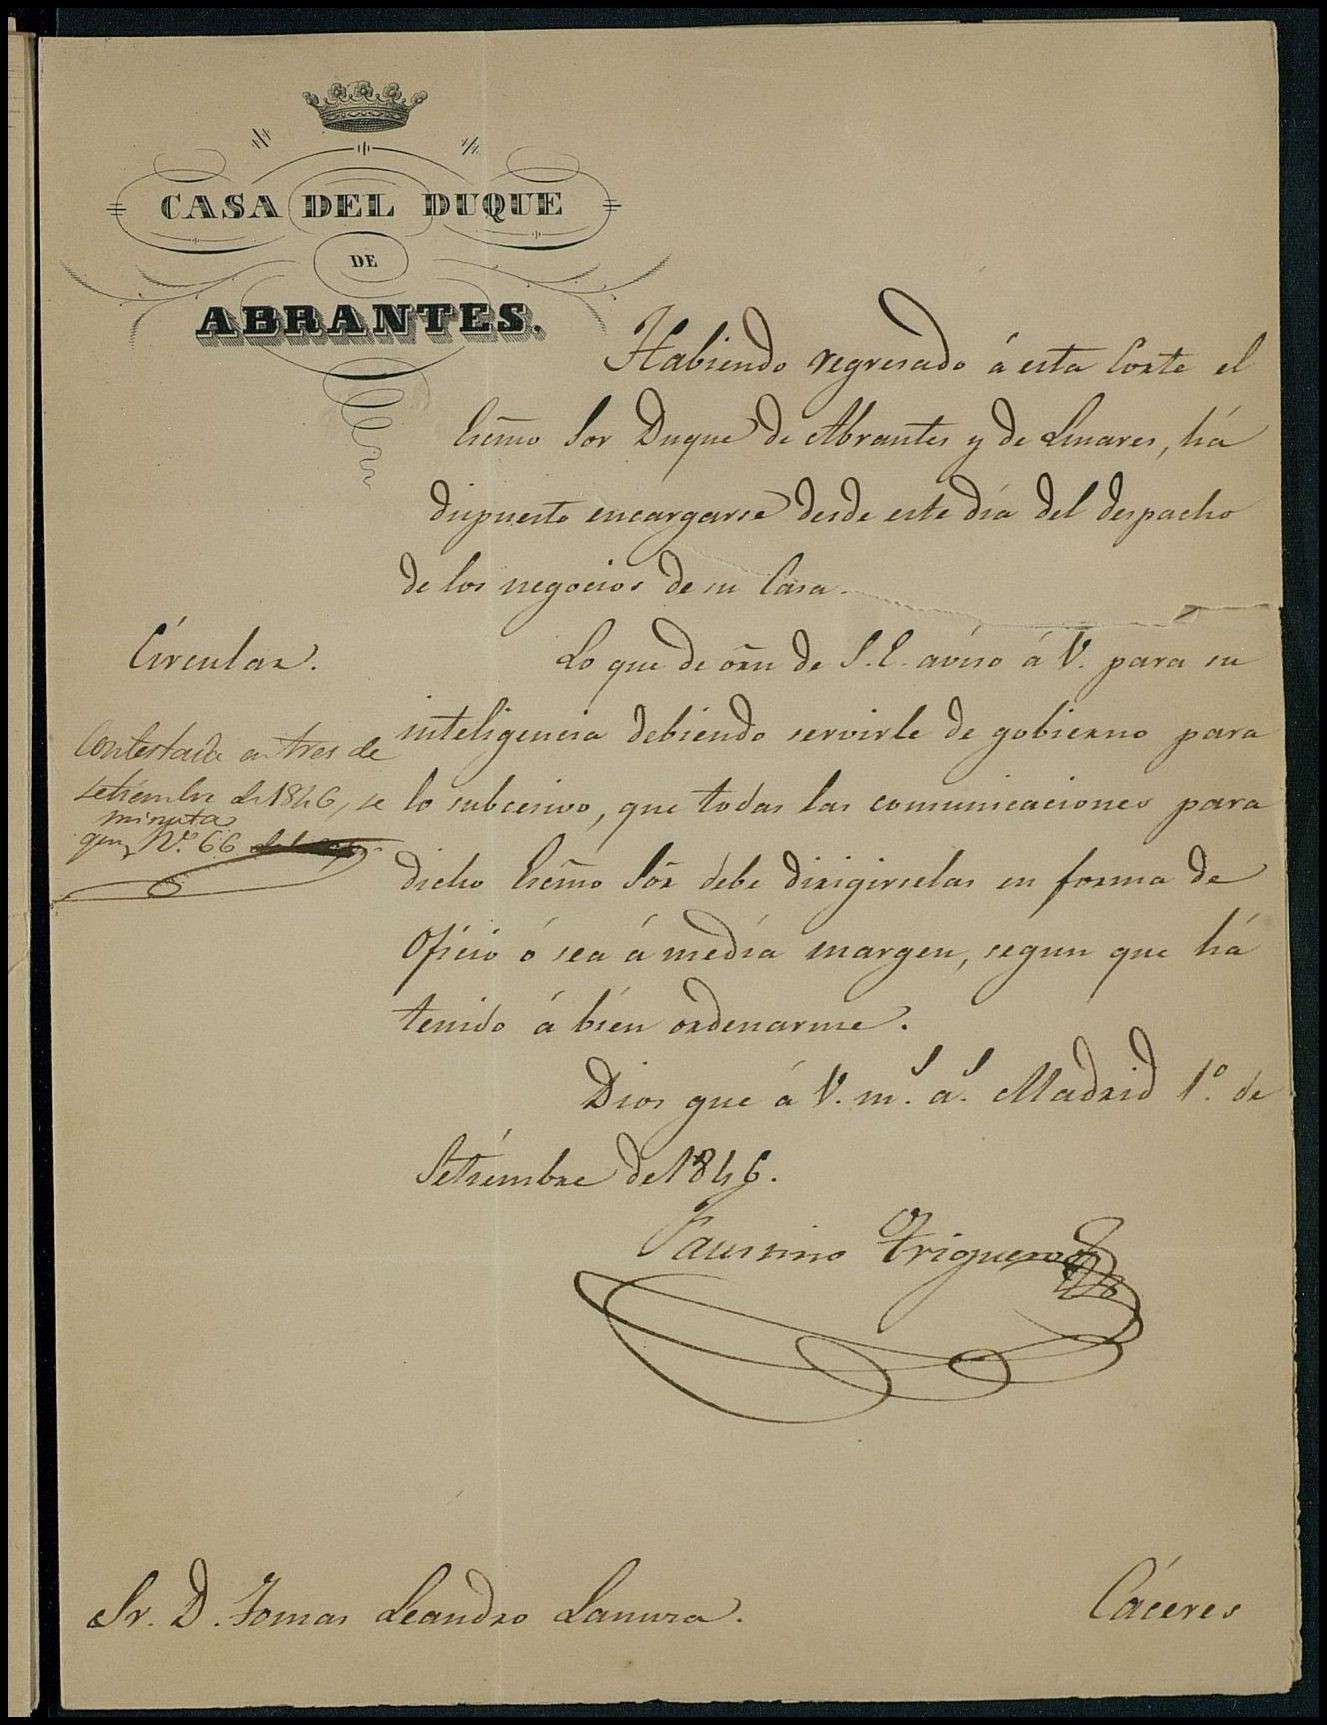 CASA DEL DUQUE
DE
ABRANTES.
Habiendo regresado á esta Corte el
Escm̃o Sor Duque de Abrantes y de Linares, há
dispuesto encargarse desde este día del despacho
de los negocios de su Casa.
Círcular.
Lo que de orñ de S.E. aviso á V. para su
inteligencia debiendo servirle de gobierno para
lo subcesivo, que todas las comunicaciones para
dicho Escm̃o Sõr debe dirigirselas en forma de
Oficio ó sea á media margen, segun que há
tenido á bien ordenarme.
Contestada en tres de
setiembre de 1846, se
minuta
gun N.º 66
Dios gue á V. m.s a.s Madrid 1.º de
Setiembre de 1846.
Faustino Trigueros
Sr. D. Tomas Leandro Lanuza.
Cáceres